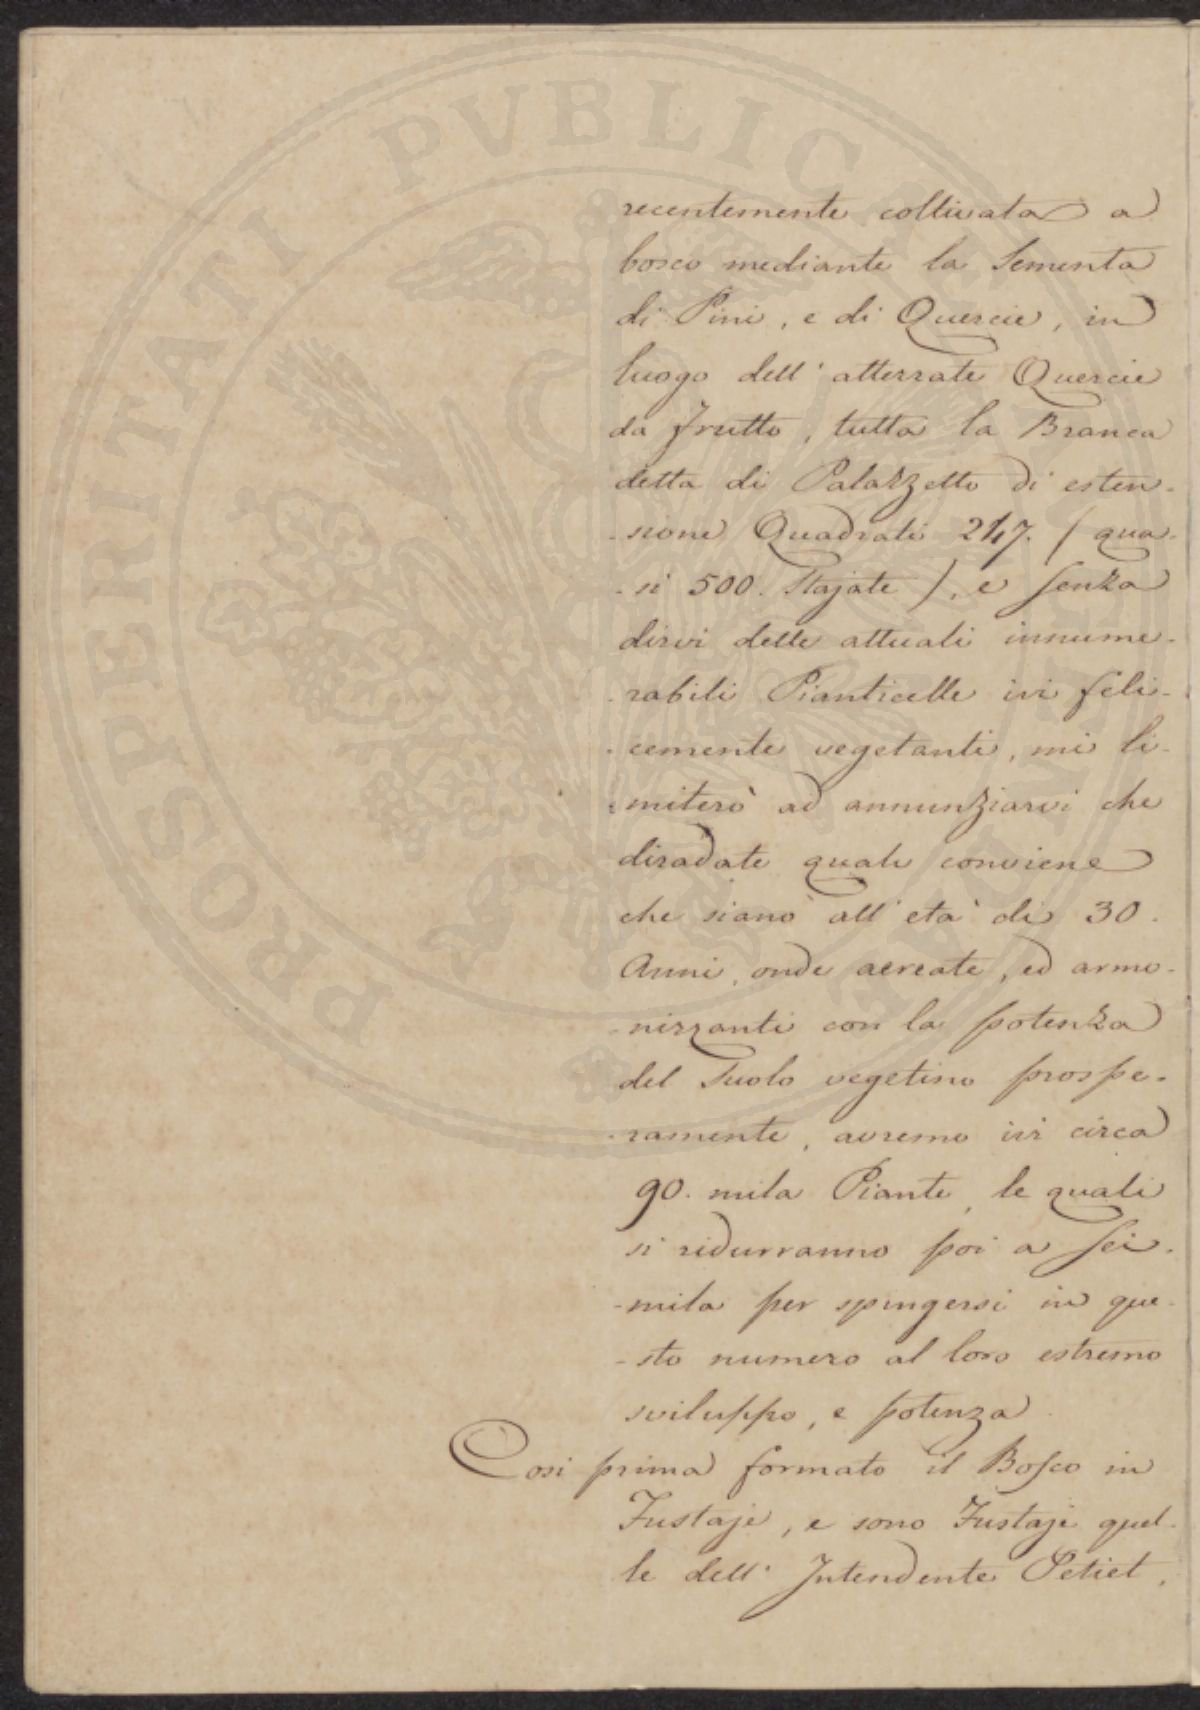 PROSPERITATI PVBLICAE AVGENDAE
recentemente coltivata a
bosco mediante la Sementa
di Pini, e di Quercie, in
luogo dell' atterrate Quercie
da frutto, tutta la Branca
detta di Palazzetto di esten-
-sione Quadrati 247. / qua-
-si 500. Stajate /, e senza
dirvi delle attuali innume-
-rabili Pianticelle ivi feli-
-cemente vegetanti, mi li-
-miterò ad annunziarvi che
diradate quali conviene
che siano all' età di 30.
Anni, onde aereate, ed armo-
-nizzanti con la potenza
del Suolo vegetino prospe-
-ramente, avremo ivi circa
90. mila Piante, le quali
si ridurranno poi a sei-
-mila per spingersi in que-
-sto numero al loro estremo
sviluppo, e potenza.
Così prima formato il Bosco in
Fustaje, e sono Fustaje quel-
le dell' Intendente Petiet,